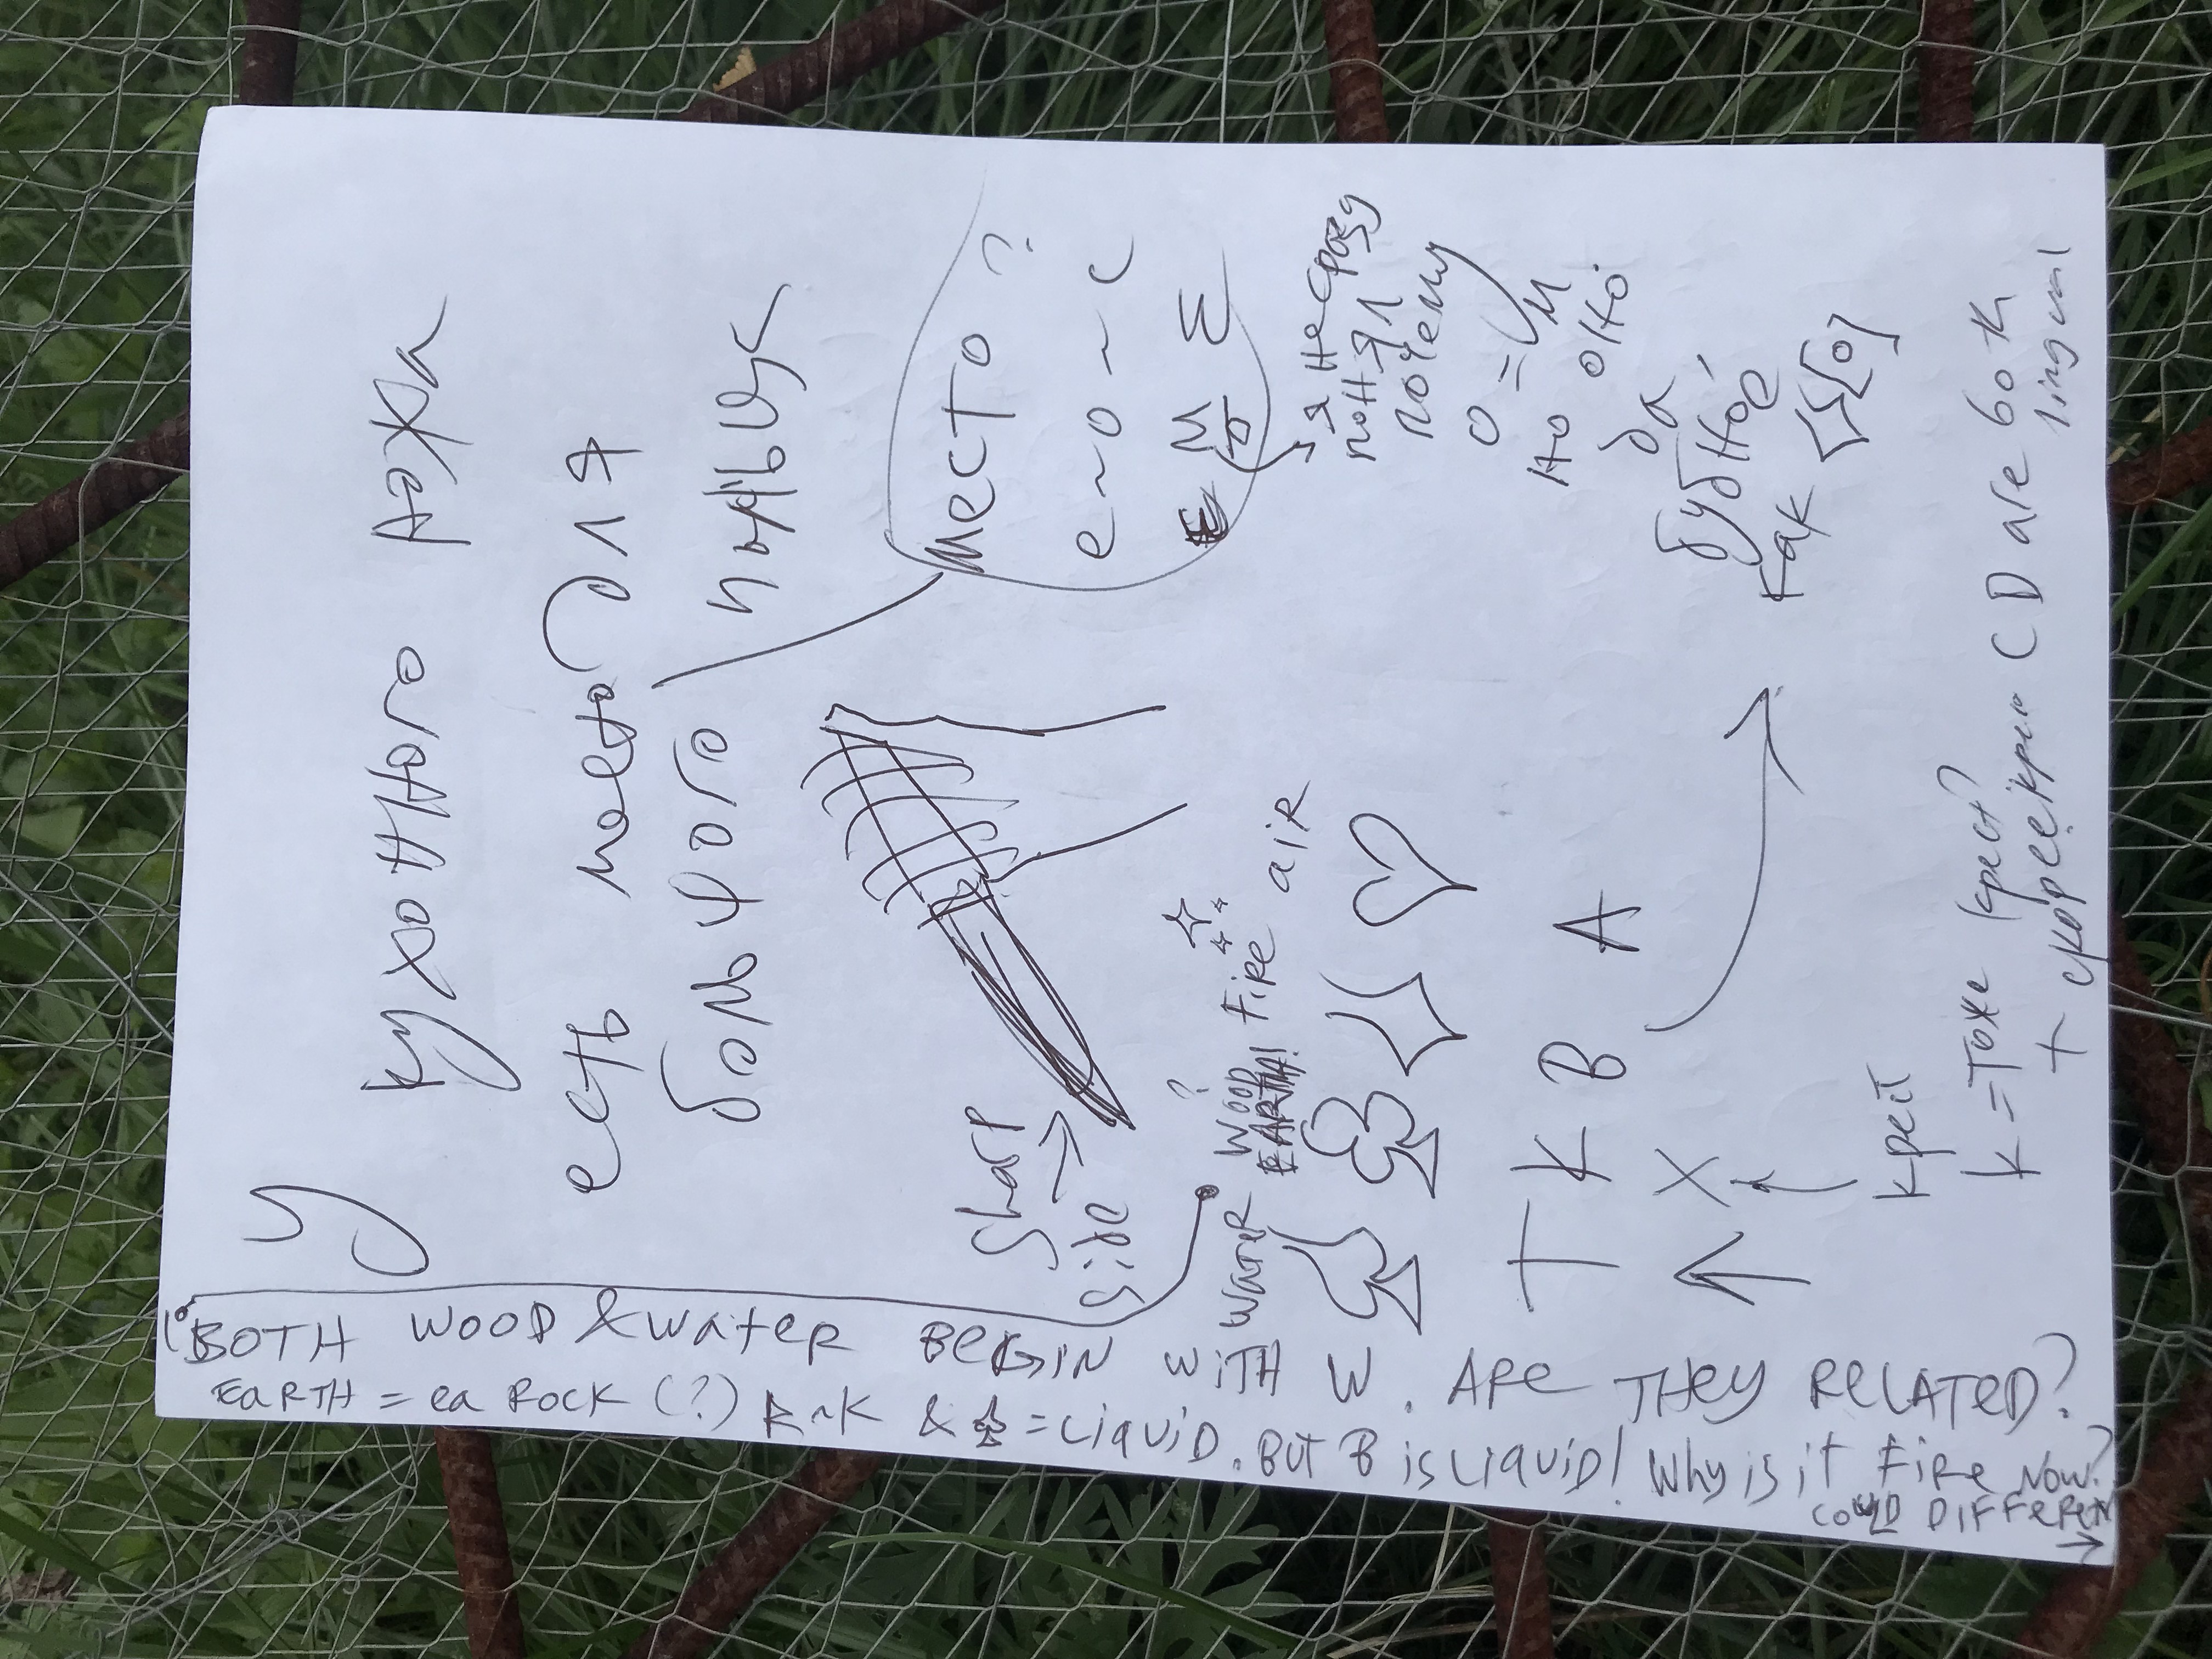 У
кухонного ножа
есть место для
большого пальца
Sharp
side
место
?
е ~ о ~ с
м
я не сразу
понял
почему
о = м
но оно
да
бубное
как
?
WATER WOOD Fire air
EARTH!
Т К В А
X
крест
К = тоже крест?
+ скорее CD are both
lingual
BOTH WOOD & WATER BEGIN WITH W. ARE THEY RELATED?
EARTH = ea Rock (?) = LiQUiD. BUT B is LiQUiD! Why is it Fire Now?